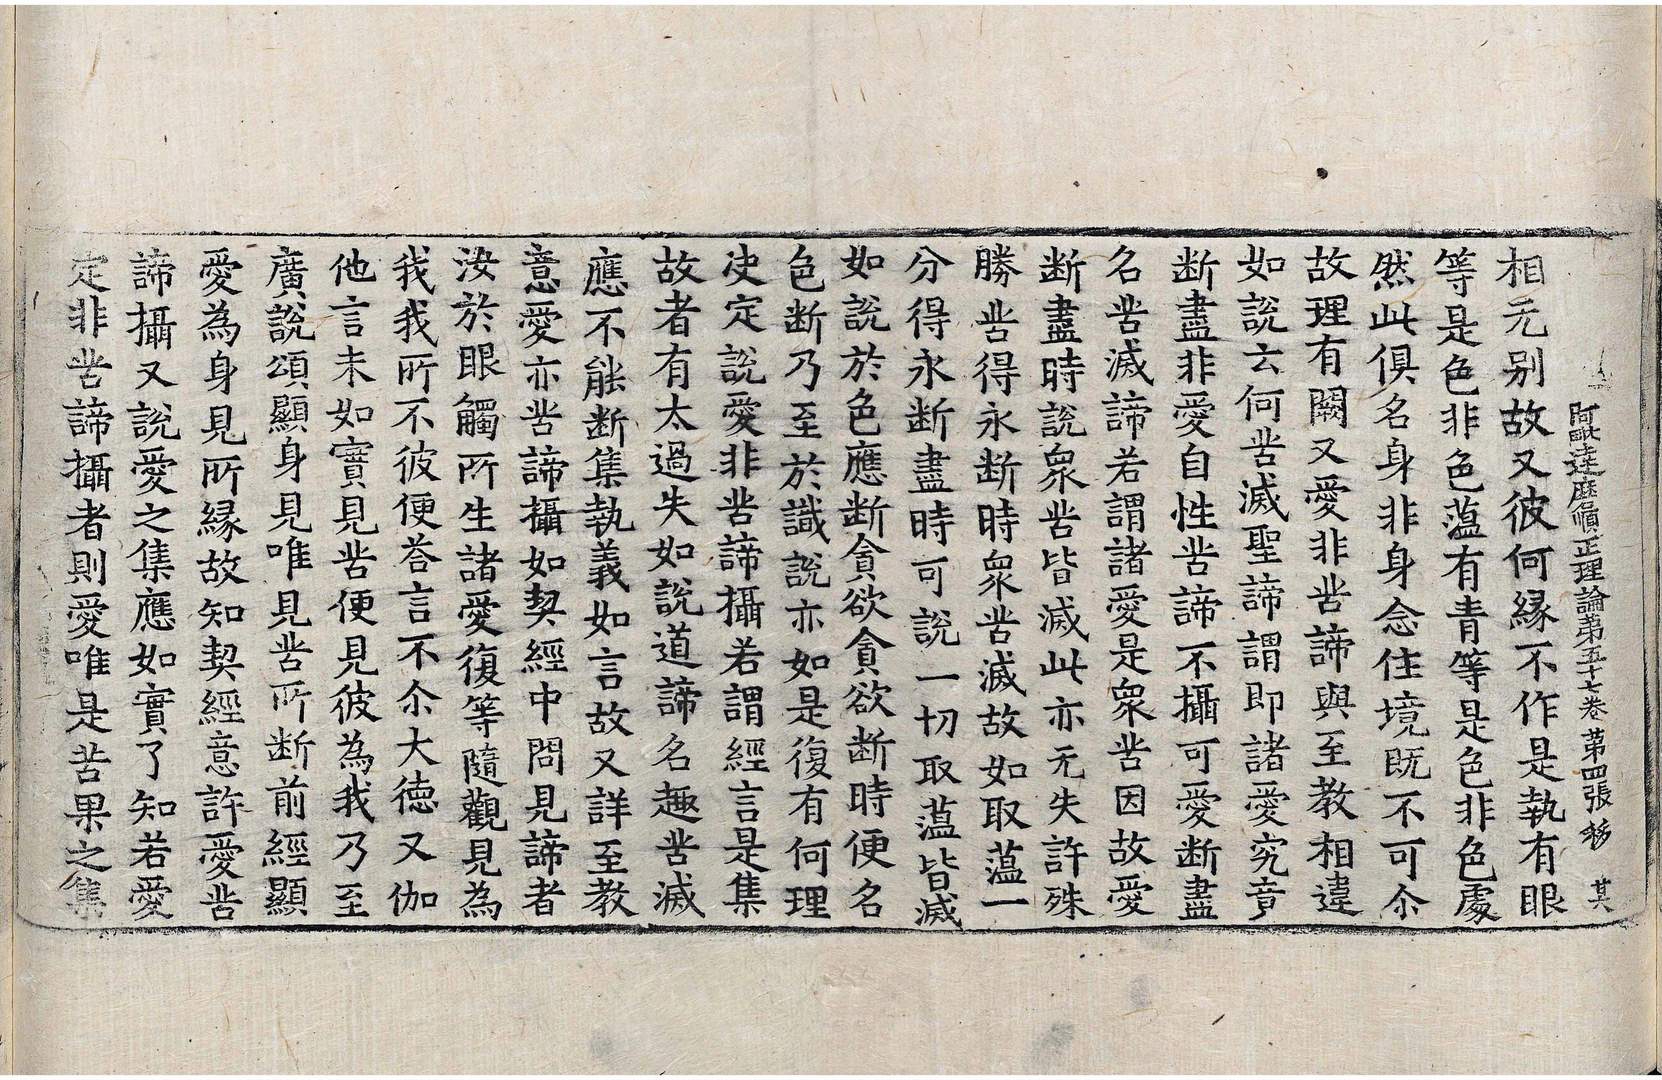 阿毗達磨順正理論第五十七卷 第四張 移 其
相无别故又彼何縁不作是執有眼
等是色非色蕰有青等是色非色處
然此俱名身非身念住境旣不可尒
故理有闕又愛非苦諦與至教相違
如說云何苦滅聖諦謂即諸愛究竟
断盡非愛自性苦諦不攝可愛断盡
名苦滅諦若謂諸愛是衆苦因故愛
断盡時說衆苦皆滅此亦无失許殊
勝苦得永断時衆苦滅故如取蕰一
分得永断盡時可說一切取蕰皆滅
如說於色應断貪欲貪欲断時便名
色断乃至於識說亦如是復有何理
决定說愛非苦諦攝若謂經言是集
故者有太過失如說道諦名趣苦滅
應不能断集執義如言故又詳至教
意愛亦苦諦攝如契經中問見諦者
汝於眼觸所生諸愛復等隨觀見為
我我所不彼便荅言不尒大德又伽
他言未如實見苦便見彼為我乃至
廣說頌顯身見唯見苦所断前經顯
愛為身見所縁故知契經意許愛苦
諦攝又說愛之集應如實了知若愛
定非苦諦攝者則愛唯是苦果之集